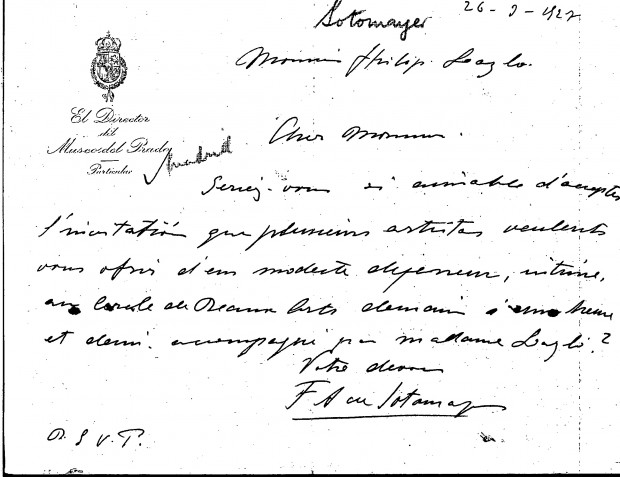 Sotomayer
26-3-1927
Monsieur Philip. Lazlo.
El Director
del
Museo del Prado
Particular
Madrid
Cher Monsieur.
Seriez-vous si aimable d'accepter
l'invitatión que plusieurs artistas veulents
vous ofrir d'un modeste dejeuneur, intime,
au Cercle de Beaux Arts demain à une heure
et demi. accompagné par madame Lazló?
Votre devoué
F A de Sotomayor
R. S V. P.